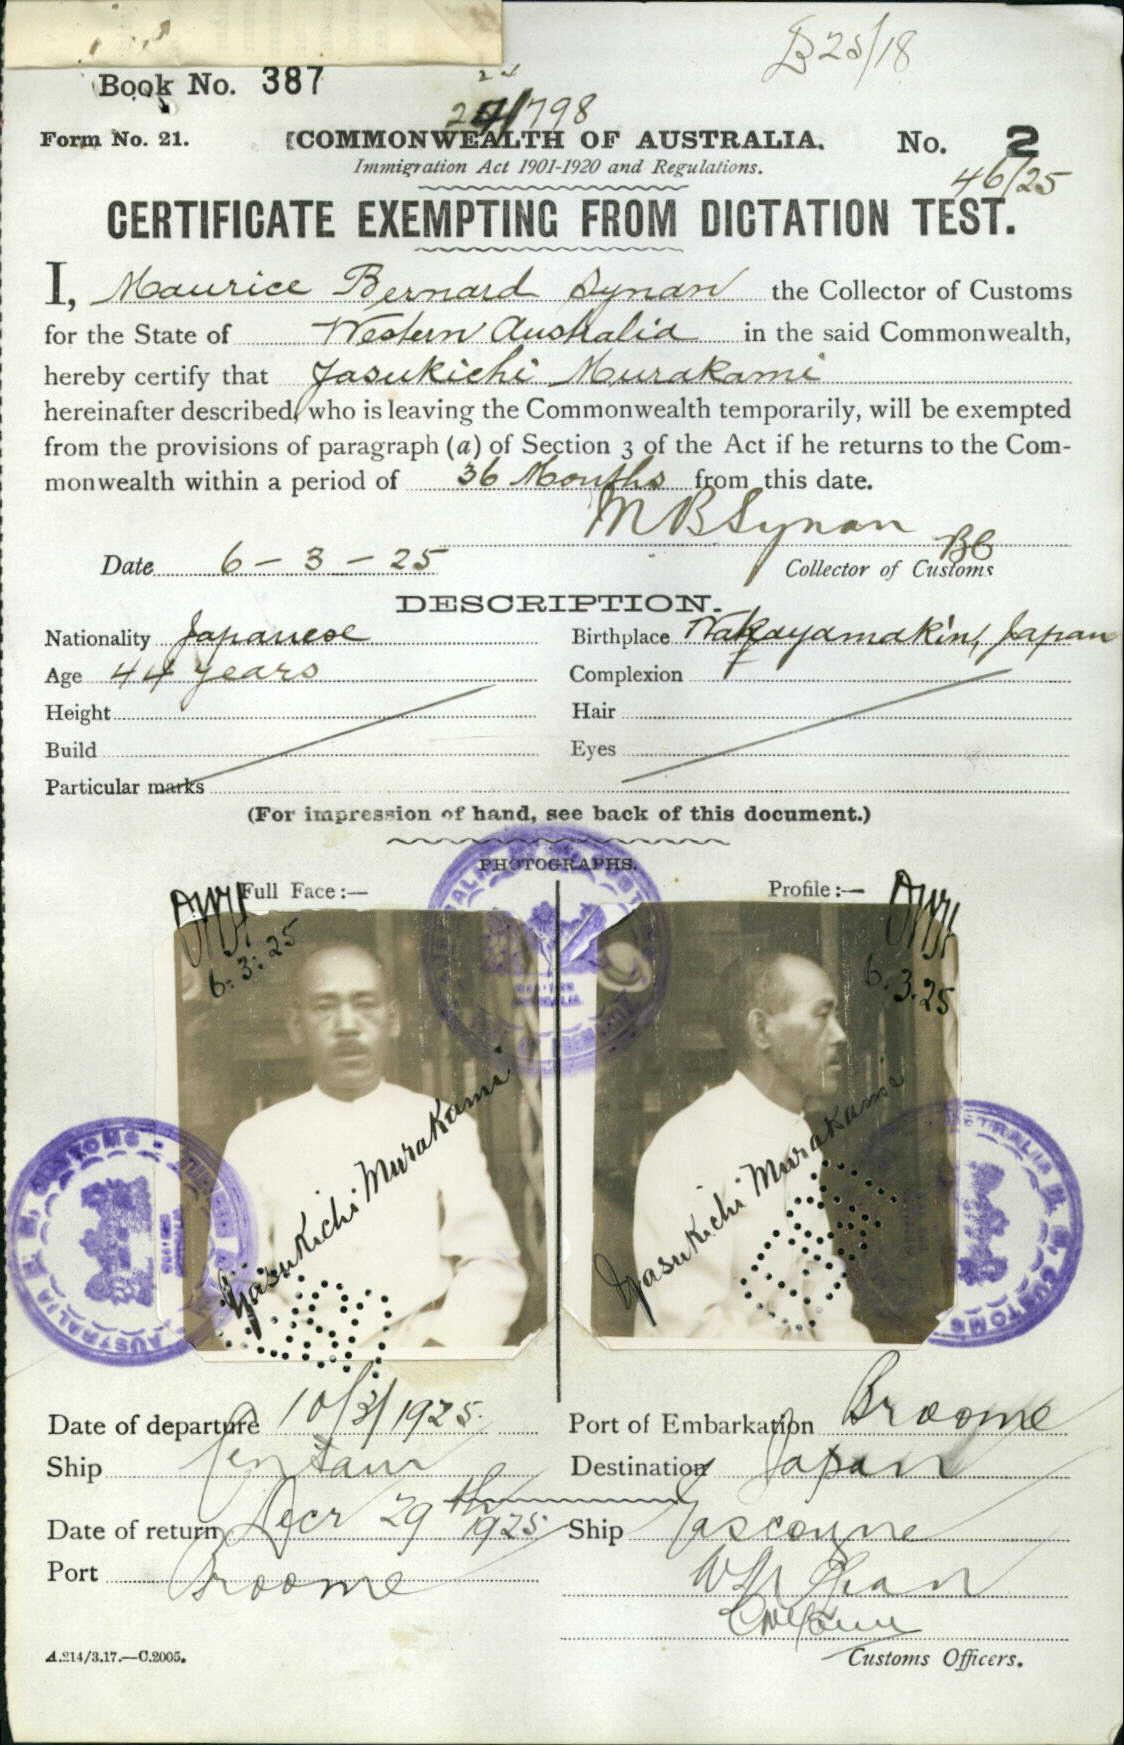 B 25/18
Book No. 387
24
24/798
Form No. 21. COMMONWEALTH OF AUSTRALIA. No. 2
Immigration Act 1901-1920 and Regulations.
46/25
CERTIFICATE EXEMPTING FROM DICTATION TEST.
I, Maurice Bernard Synan the Collector of Customs
for the State of Western Australia in the said Commonwealth,
hereby certify that Jasukichi Murakami
hereinafter described, who is leaving the Commonwealth temporarily, will be exempted
from the provisions of paragraph (a) of Section 3 of the Act if he returns to the Com-
monwealth within a period of 36 Months from this date.
M B Synan
Date 6-3-25 Collector of Customs
DESCRIPTION.
Nationality Japanese Birthplace Wakayamakin, Japan
Age 44 years Complexion
Height Hair
Build Eyes
Particular marks
(For impression of hand, see back of this document.)
PHOTOGRAPHS.
Full Face:— Profile:—
6.3.25 6.3.25
Yasukichi Murakami Yasukichi Murakami
Date of departure 10/3/1925. Port of Embarkation Broome
Ship Centaur Destination Japan
Date of return Decr 29th 1925 Ship Gascoyne
Port Broome
Customs Officers.
A.214/3.17.—C.2005.